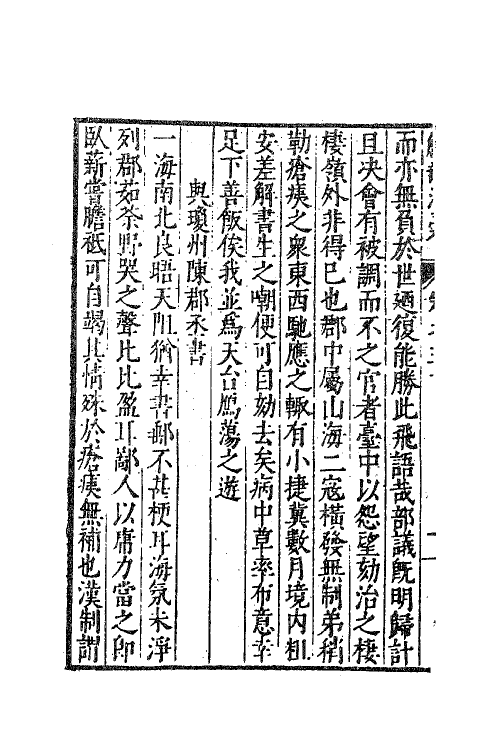 而亦無負於世廼復能勝此飛語哉部議旣明歸計
且决會有被調而不之官者臺中以怨望劾治之棲
棲嶺外非得已也郡中屬山海二寇橫發無制弟稍
勒瘡痍之衆東西馳應之輙有小捷冀數月境内粗
安差解書生之嘲便可自劾去矣病中草率布意幸
足下善飯俟我並爲天台鴈蕩之遊
與瓊州陳郡丞書
一海南北良晤天阻猶幸書郵不甚梗耳海氛未淨
列郡茹荼野哭之聲比比盈耳鄙人以庸力當之卽
臥薪嘗膽祗可自竭其情殊於瘡痍無補也漢制謂